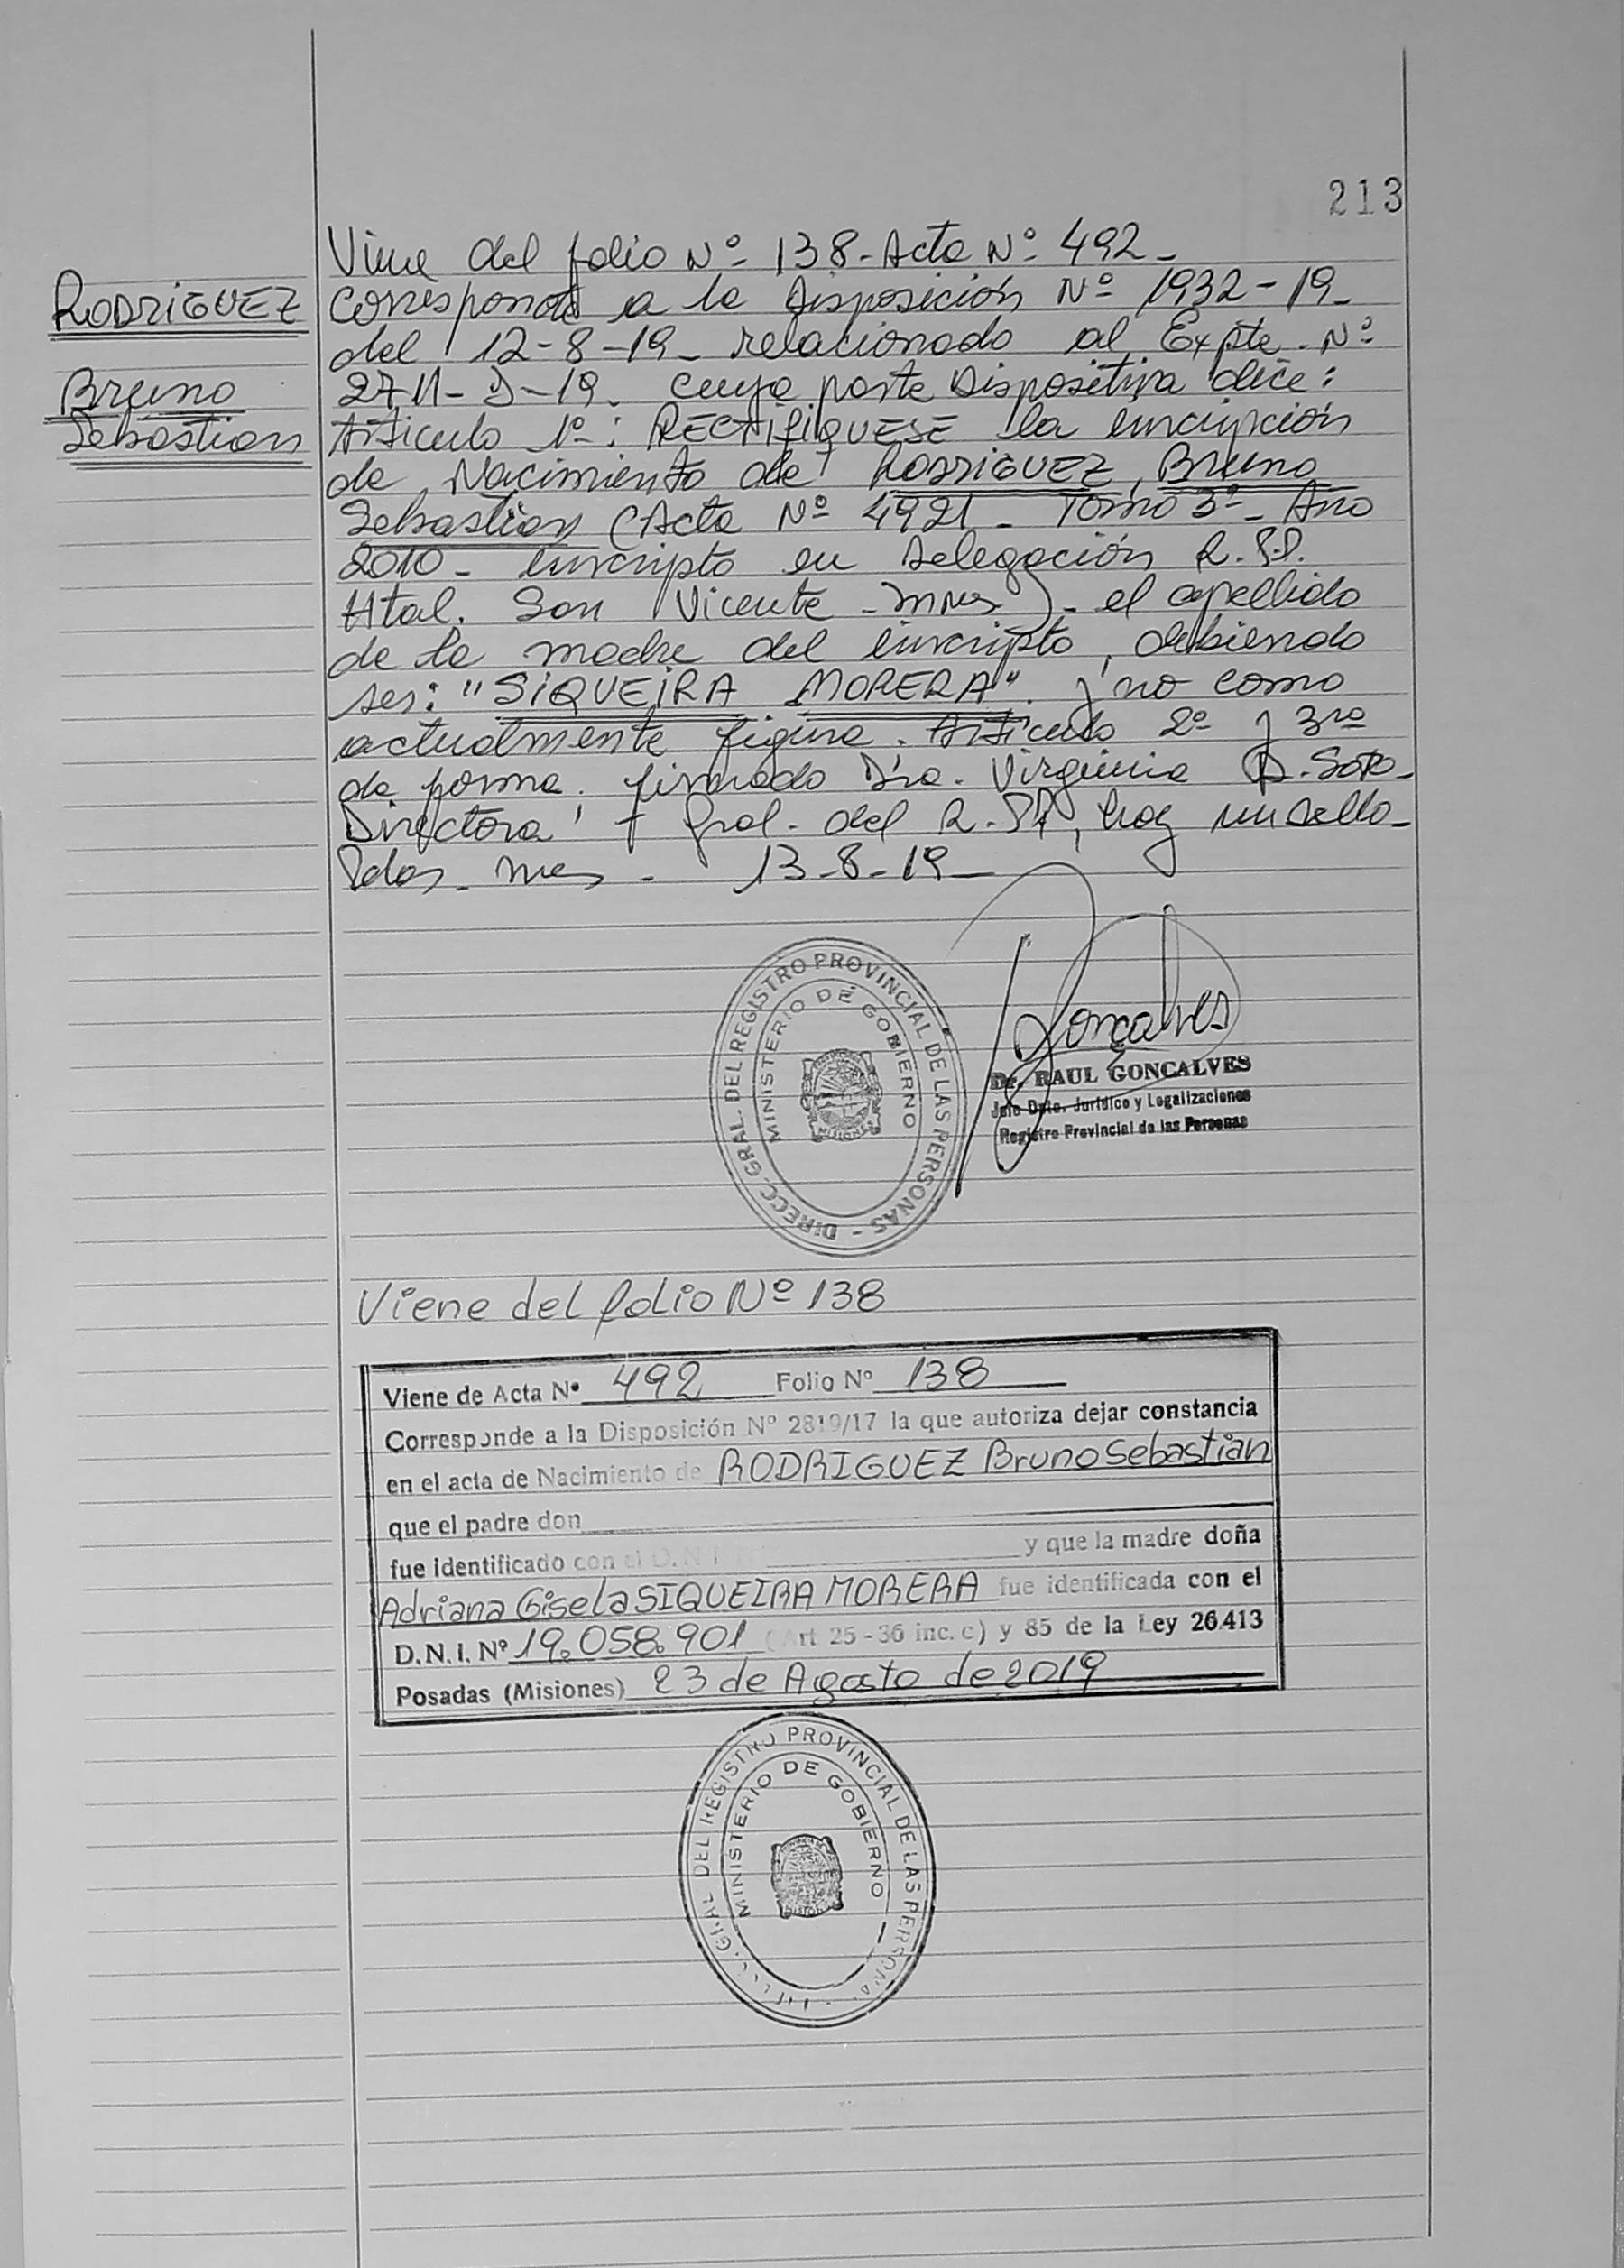 213
Viene del folio Nº 138 - Acta Nº 492 -
RODRIGUEZ
Bruno
Sebastian
Corresponde a la Disposición Nº 1932-19-
del 12-8-19- relacionado al Expte. Nº
2711-D-19. cuya parte Dispositiva dice:
Articulo 1º: RECTIFIQUESE la inscripción
de Nacimiento de RODRIGUEZ, Bruno
Sebastian (Acta Nº 492 - Tomo 3º - Año
2010 - inscripto en Delegación R.P.P.
Htal. San Vicente - Mnes) - el apellido
de la madre del inscripto, debiendo
ser: "SIQUEIRA MORERA" y no como
actualmente figura. Articulo 2º y 3ro
de forma. firmado Dra. Virginia Soto -
Directora Gral. del R.PP, hay un sello -
Pdas - Mnes - 13-8-19-
DIRECC. GRAL. DEL REGISTRO PROVINCIAL DE LAS PERSONAS -
MINISTERIO DE GOBIERNO
MISIONES
Goncalves
Dr. RAUL GONCALVES
Jefe Dpto. Jurídico y Legalizaciones
Registro Provincial de las Personas
Viene del folio Nº 138
Viene de Acta Nº 492 Folio Nº 138
Corresponde a la Disposición Nº 2819/17 la que autoriza dejar constancia
en el acta de Nacimiento de RODRIGUEZ Bruno Sebastian
que el padre don
fue identificado con el D.N.I. Nº y que la madre doña
Adriana Gisela SIQUEIRA MORERA fue identificada con el
D.N.I. Nº 19.058.901 (Art 25-36 inc. c) y 85 de la Ley 26.413
Posadas (Misiones) 23 de Agosto de 2019
GRAL DEL REGISTRO PROVINCIAL DE LAS PERSONAS
MINISTERIO DE GOBIERNO